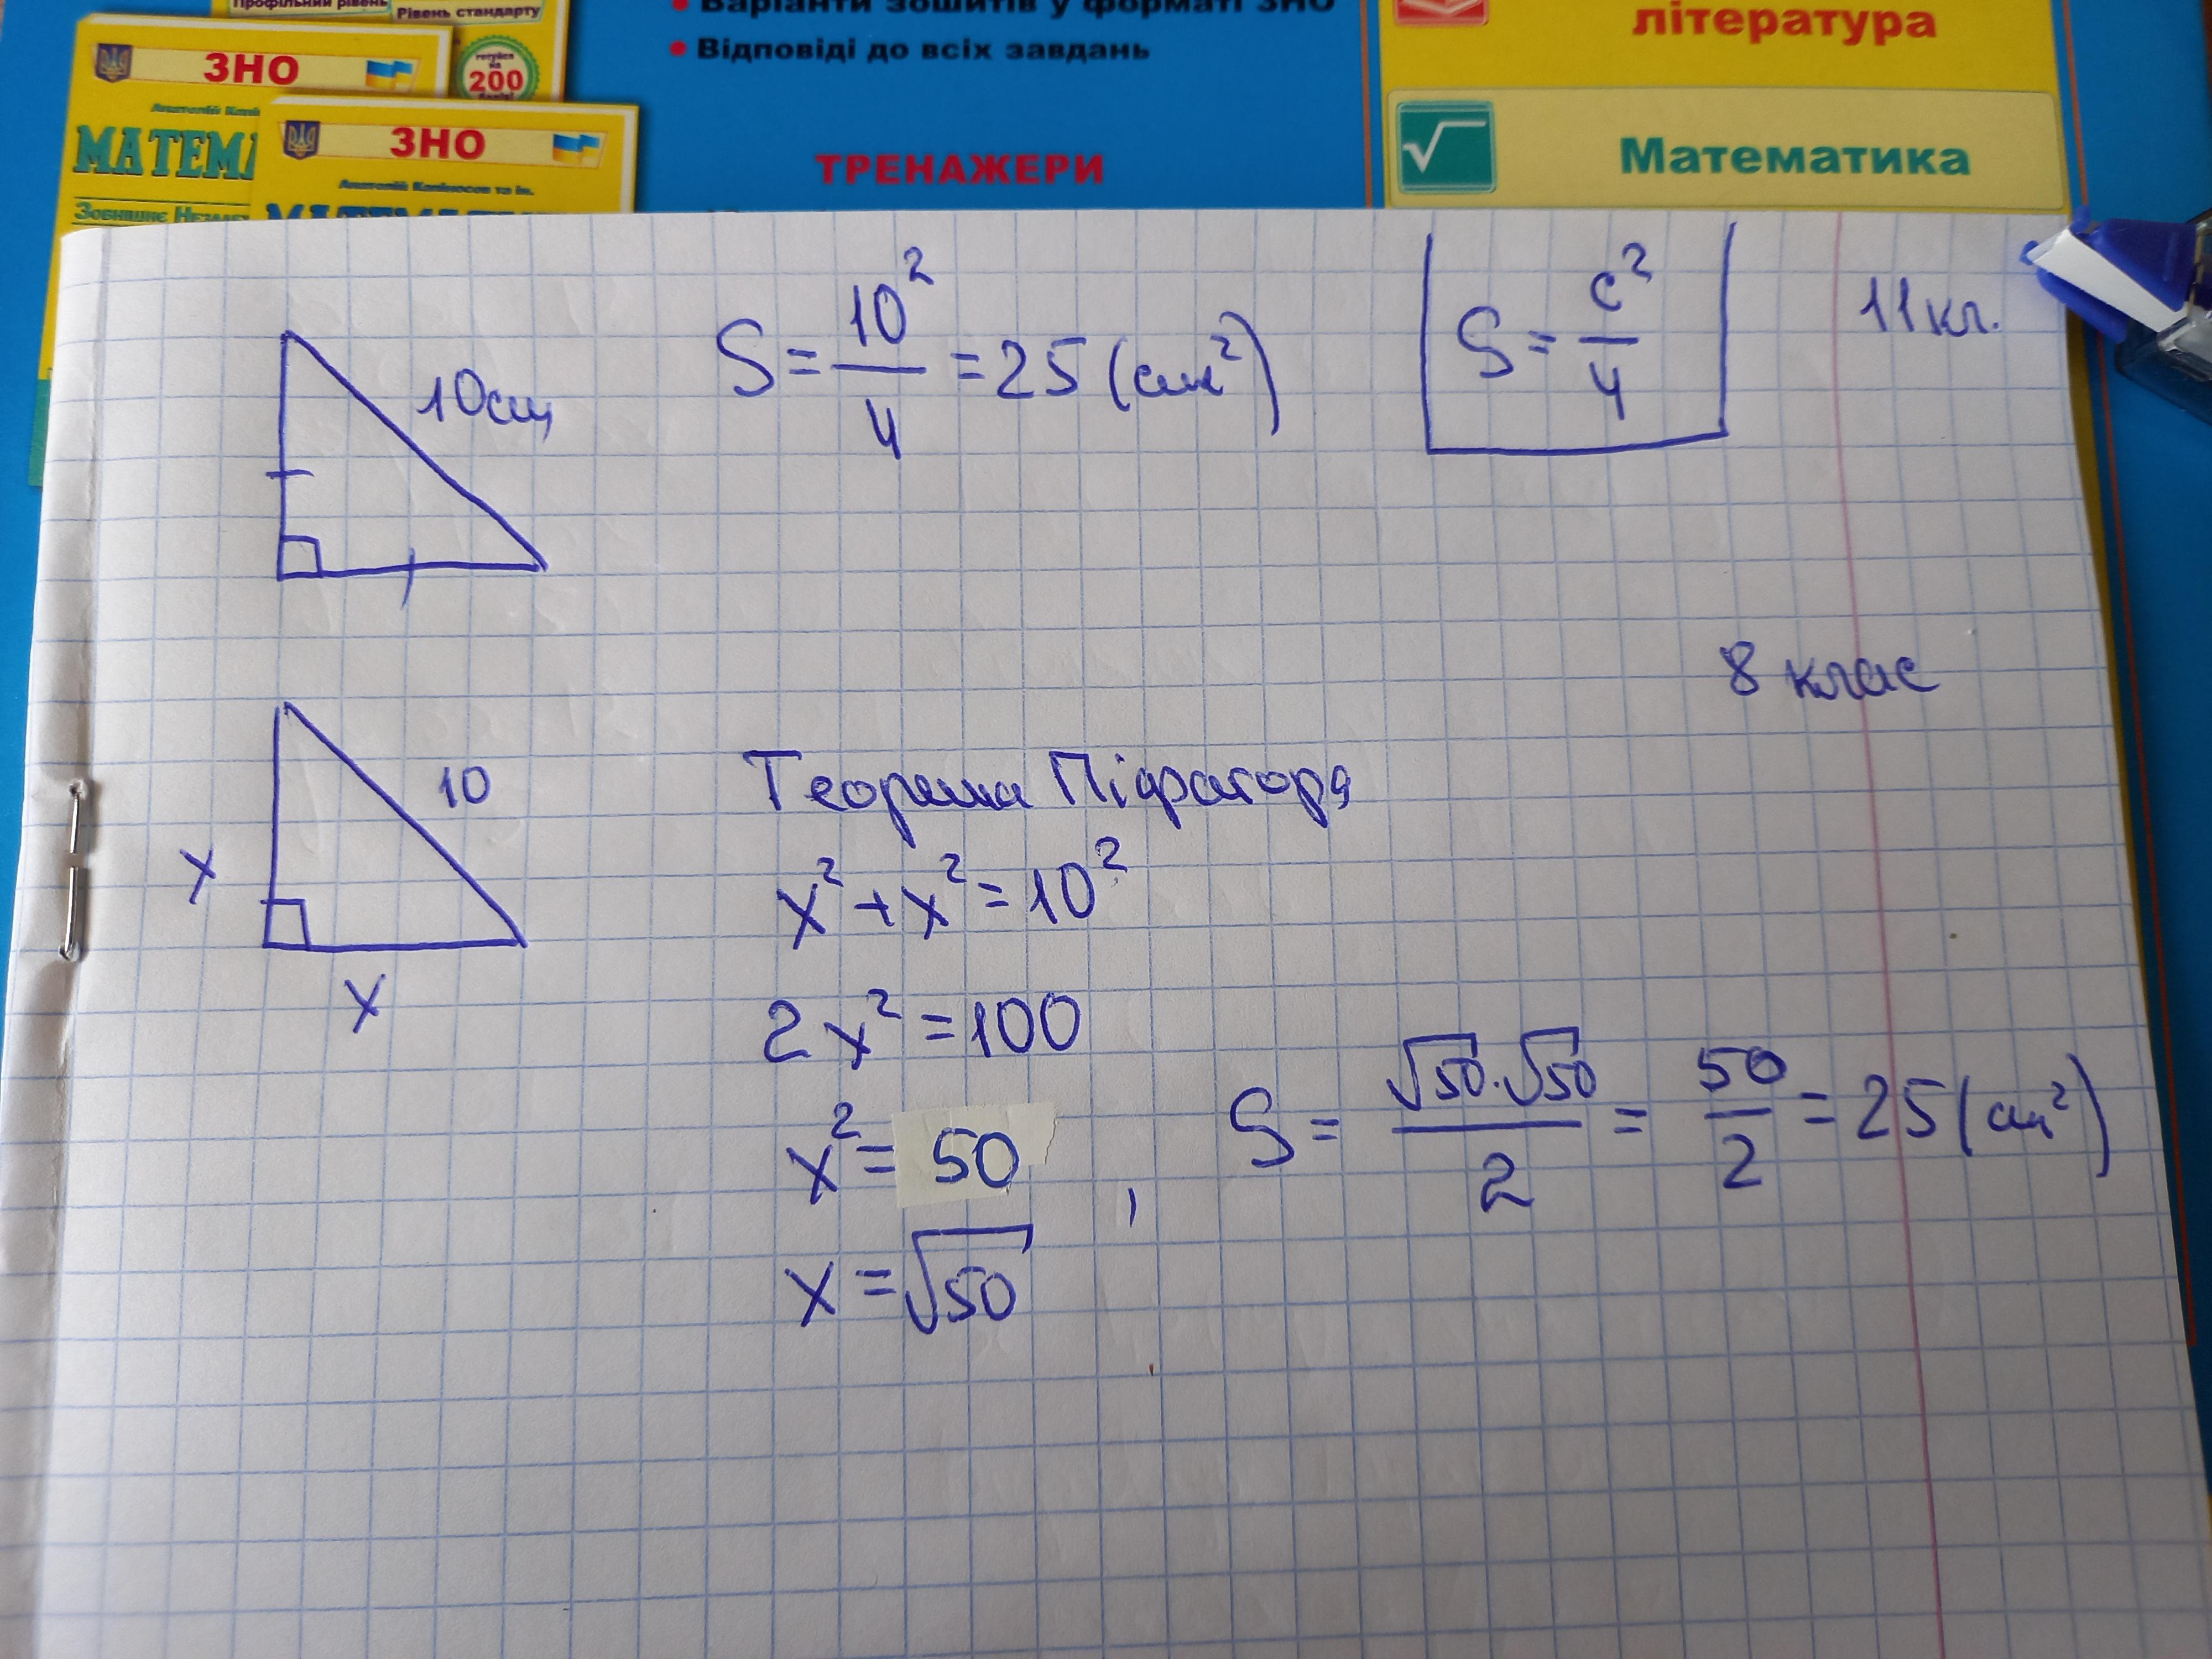 Профільний рівень
Рівень стандарту
ЗНО
готуйся
на
200
балів!
Анатолій Капін
МАТЕМА
Зовнішнє Незалеж
ЗНО
Анатолій Капіносов та ін.
• Варіанти зошитів у форматі ЗНО
• Відповіді до всіх завдань
ТРЕНАЖЕРИ
література
√
Математика
10см
S = 10² / 4 = 25 (см²)
S = c² / 4
11 кл.
8 клас
10
x
x
Теорема Піфагора
x² + x² = 10²
2x² = 100
x² = 50 ,
x = √50
S = √50 · √50 / 2 = 50 / 2 = 25 (см²)